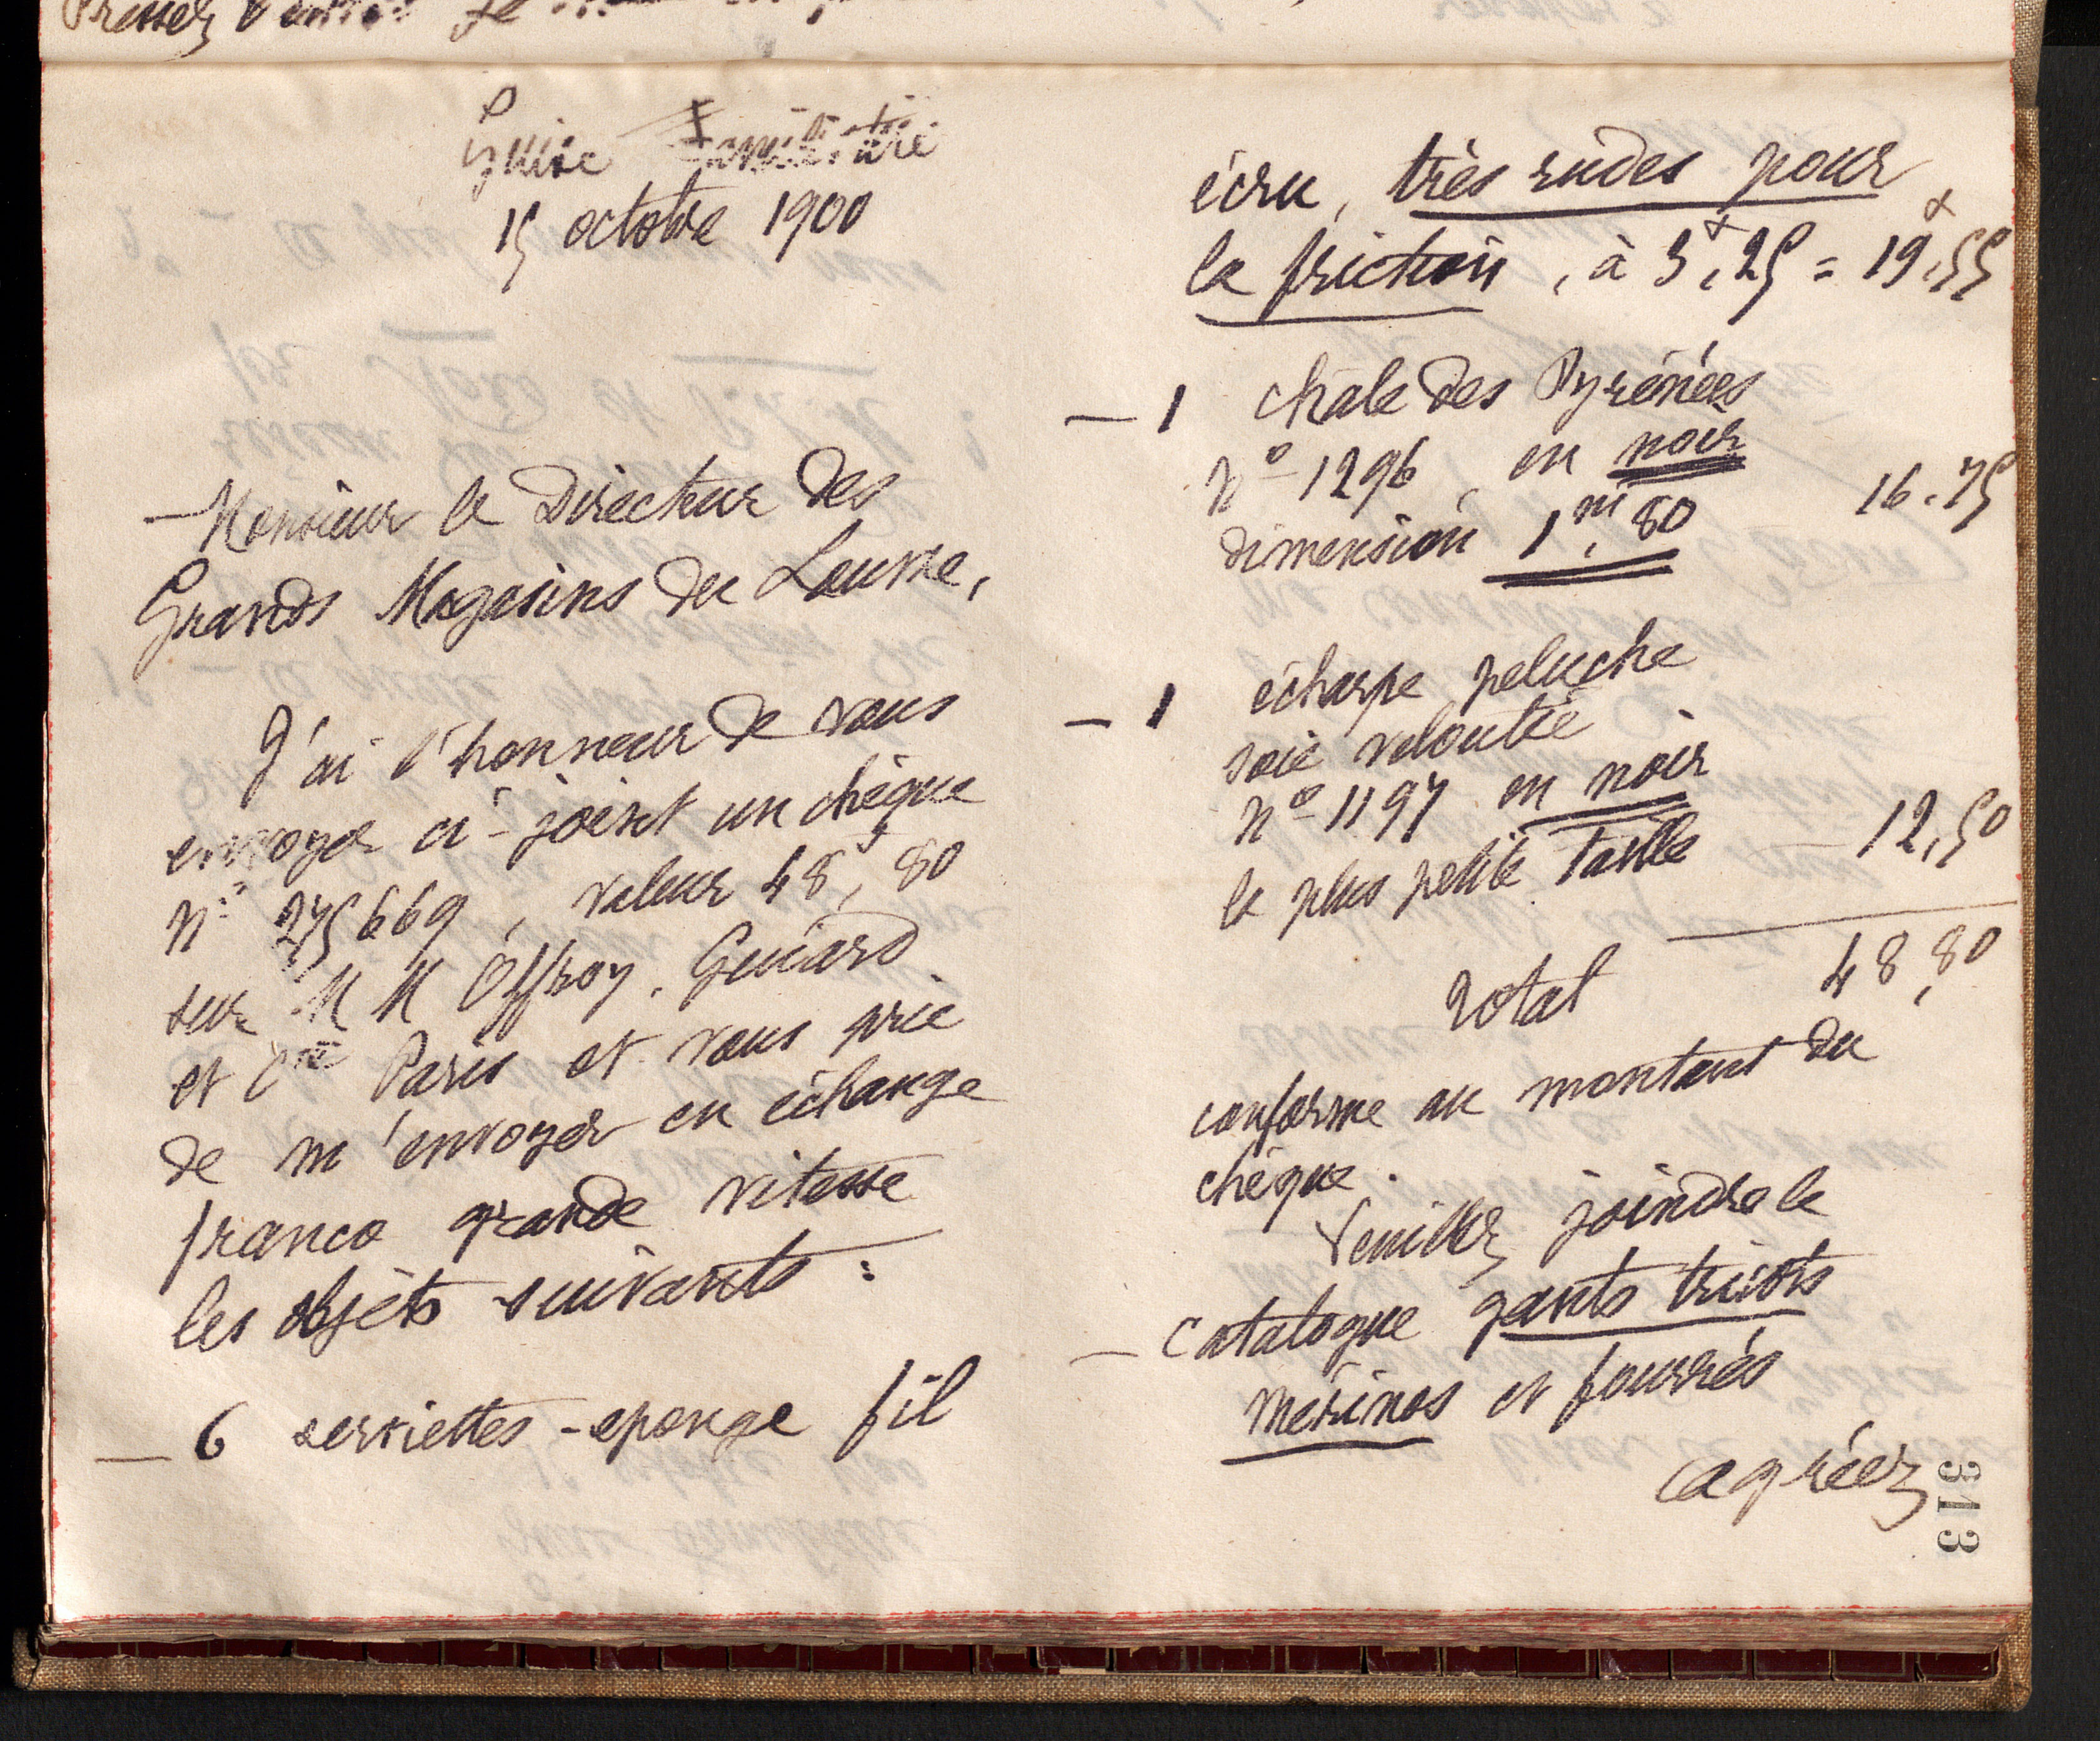 Guise Familistère
15 octobre 1900
Monsieur le Directeur des
Grands Magasins du Louvre,
J'ai l'honneur de vous
envoyer ci-joint un chèque
n° 275669, valeur 48f,80
sur MM Offroy, Guiard
et Cie Paris et vous prie
de m'envoyer en échange
franco grande vitesse
les objets suivants :
— 6 serviettes-eponge fil
écru, très rudes pour
la friction, à 3f,25 = 19f,55
— 1 châle des Pyrénées
n° 1296, en noir
dimension 1m,80 16.75
— 1 écharpe peluche
soie veloutée
n° 1197 en noir
la plus petite taille 12,50
Total 48,80
conforme au montant du
chèque.
Veuillez joindre le
— catalogue gants tricots
mérinos et fourrés
agréez
313